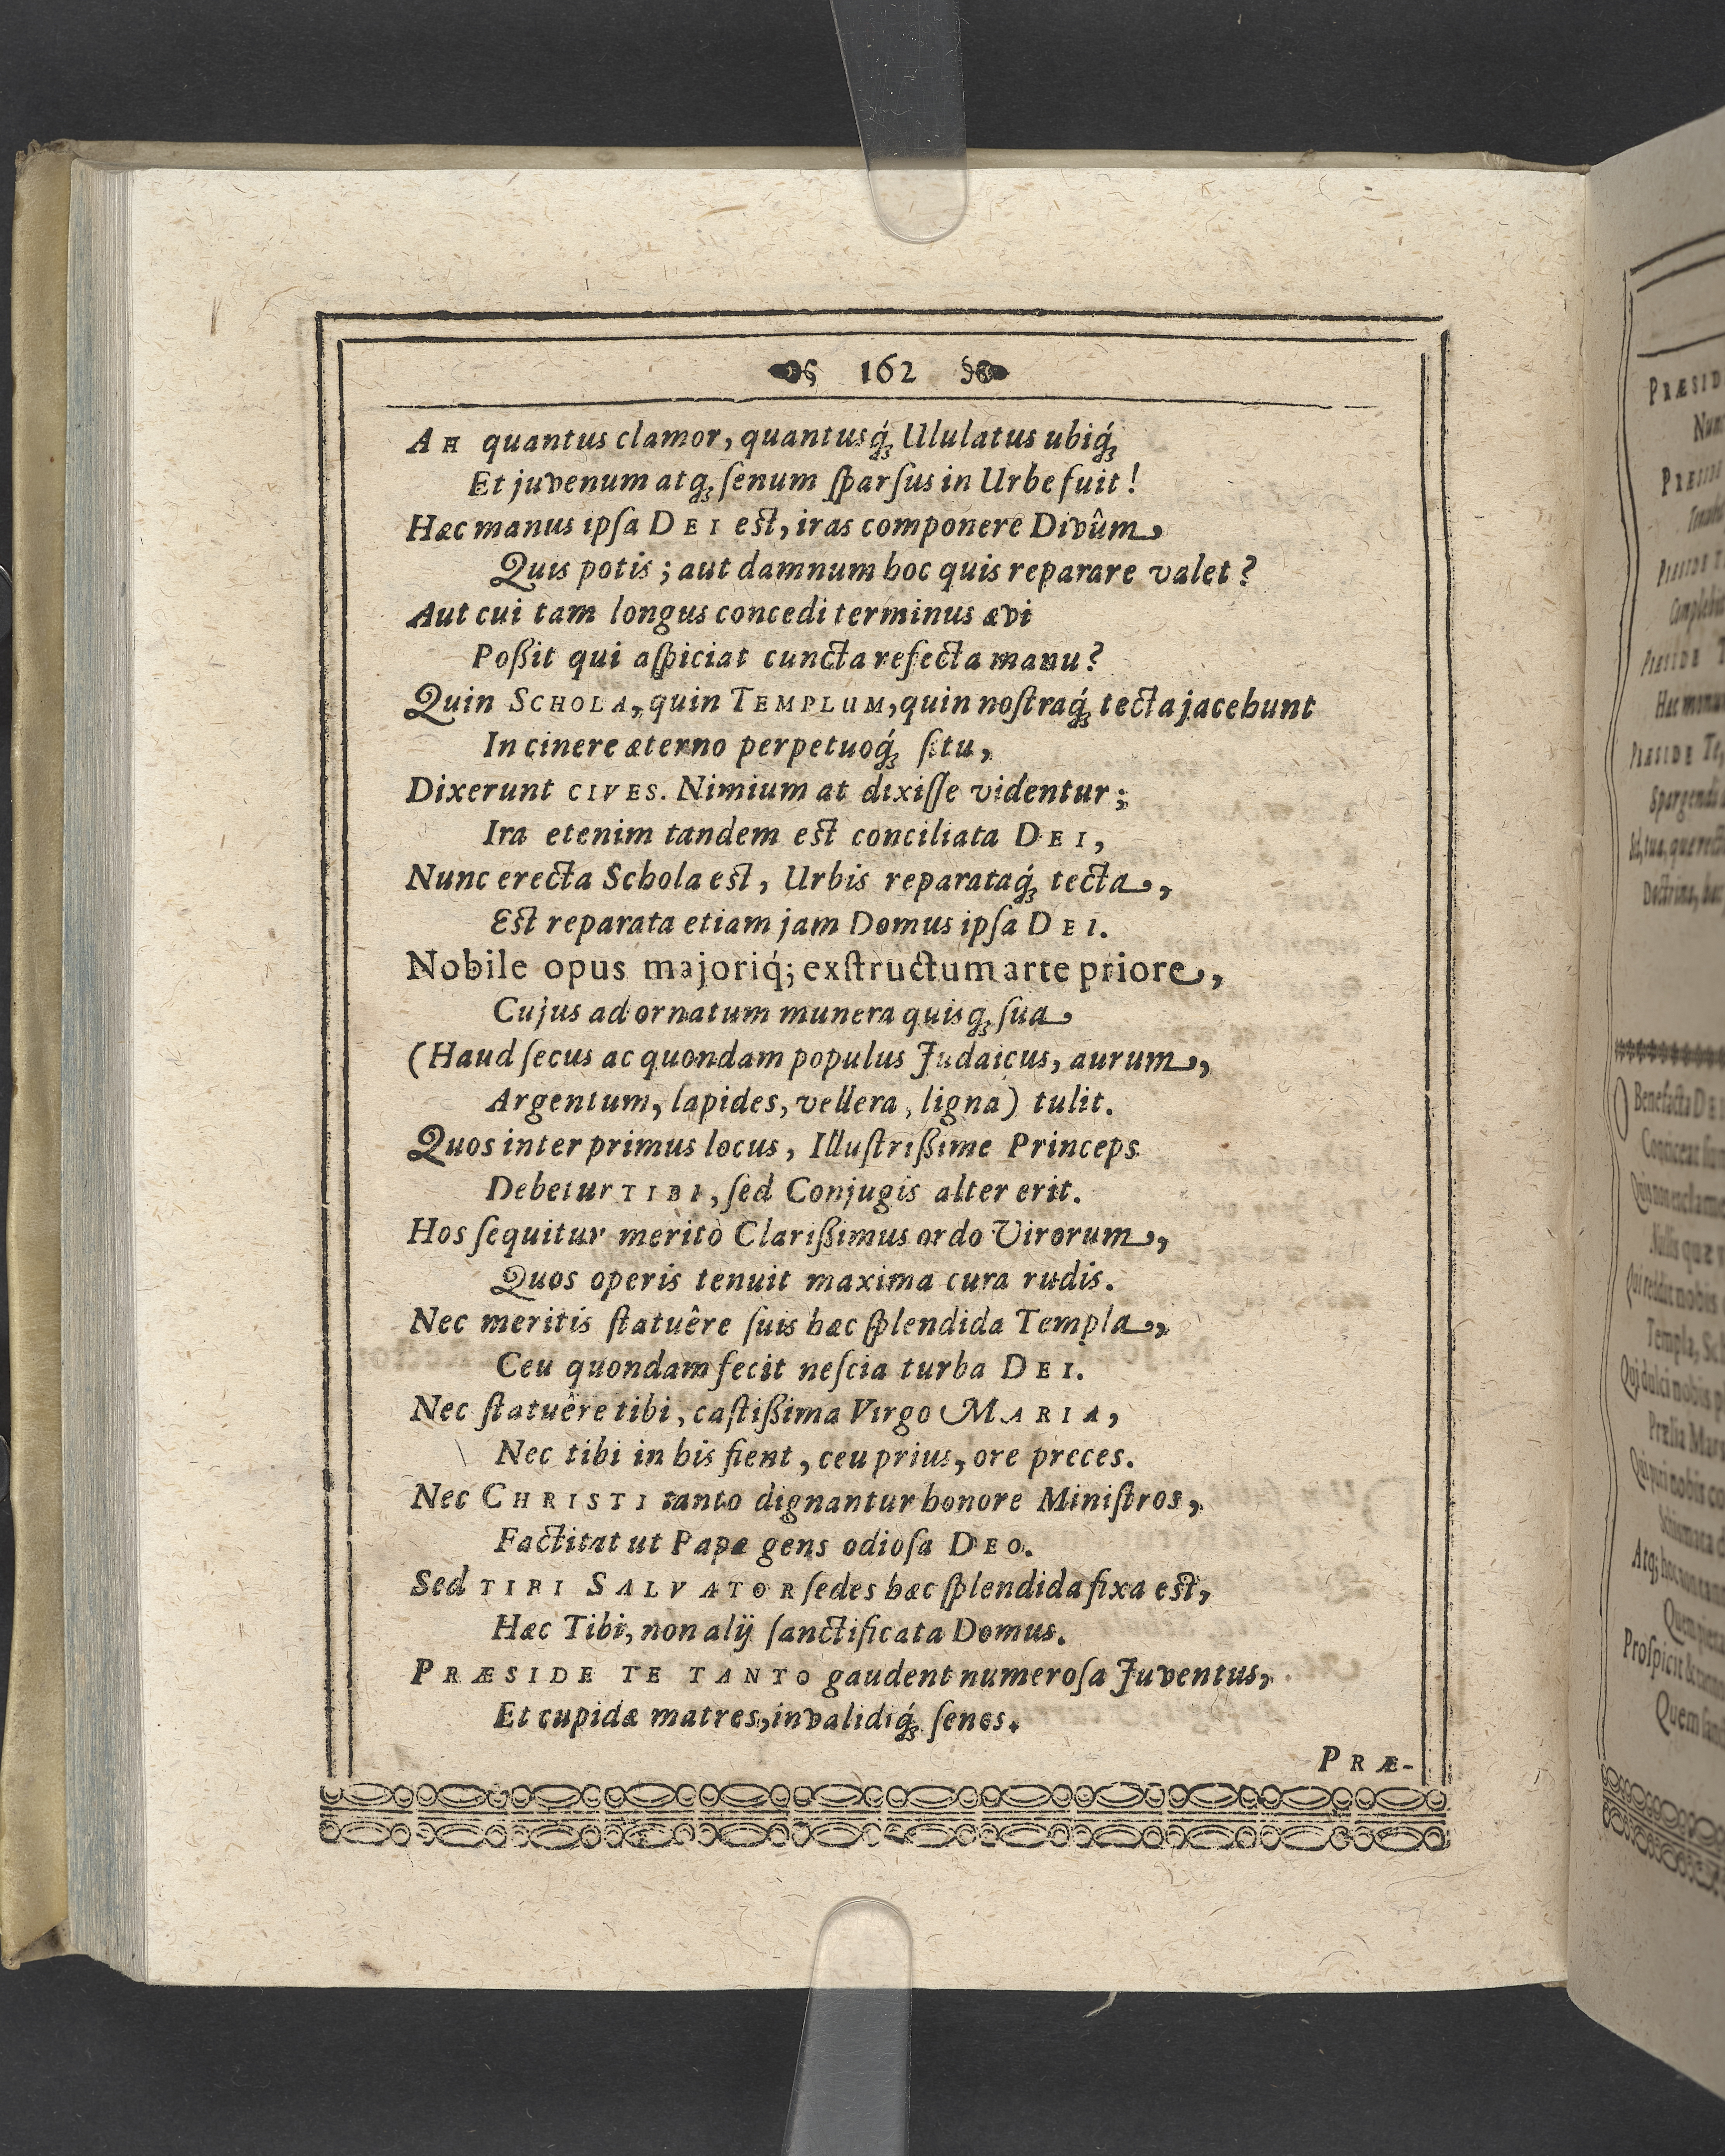 162
AH quantus clamor, quantusq́; Ululatus ubiq́;
Et juvenum atq; ſenum ſparſus in Urbe fuit!
Hæc manus ipſa DEI eſt, iras componere Divûm,
Quis potis; aut damnum hoc quis reparare valet?
Aut cui tam longus concedi terminus ævi
Poßit qui aſpiciat cuncta refecta manu?
Quin SCHOLA, quin TEMPLUM, quin noſtraq́; tecta jacebunt
In cinere æterno perpetuoq́; ſitu,
Dixerunt CIVES. Nimium at dixiſſe videntur;
Ira etenim tandem eſt conciliata DEI,
Nunc erecta Schola eſt, Urbis reparataq́; tecta,
Eſt reparata etiam jam Domus ipſa DEI.
Nobile opus majoriq́; exſtructum arte priore,
Cujus ad ornatum munera quisq; ſua
(Haud ſecus ac quondam populus Judaicus, aurum,
Argentum, lapides, vellera, ligna) tulit.
Quos inter primus locus, Illuſtrißime Princeps
Debetur TIBI, ſed Conjugis alter erit.
Hos ſequitur meritò Clarißimus ordo Virorum,
Quos operis tenuit maxima cura rudis.
Nec meritis ſtatuêre ſuis hæc ſplendida Templa,
Ceu quondam fecit neſcia turba DEI.
Nec ſtatuêre tibi, caſtißima Virgo MARIA,
Nec tibi in his fient, ceu prius, ore preces.
Nec CHRISTI tanto dignantur honore Miniſtros,
Factitat ut Papæ gens odioſa DEO.
Sed TIBI SALVATOR ſedes hæc ſplendida fixa eſt,
Hæc Tibi, non alij ſanctificata Domus.
PRÆSIDE TE TANTO gaudent numeroſa Juventus,
Et cupidæ matres, invalidiq́; ſenes.
PRÆ-